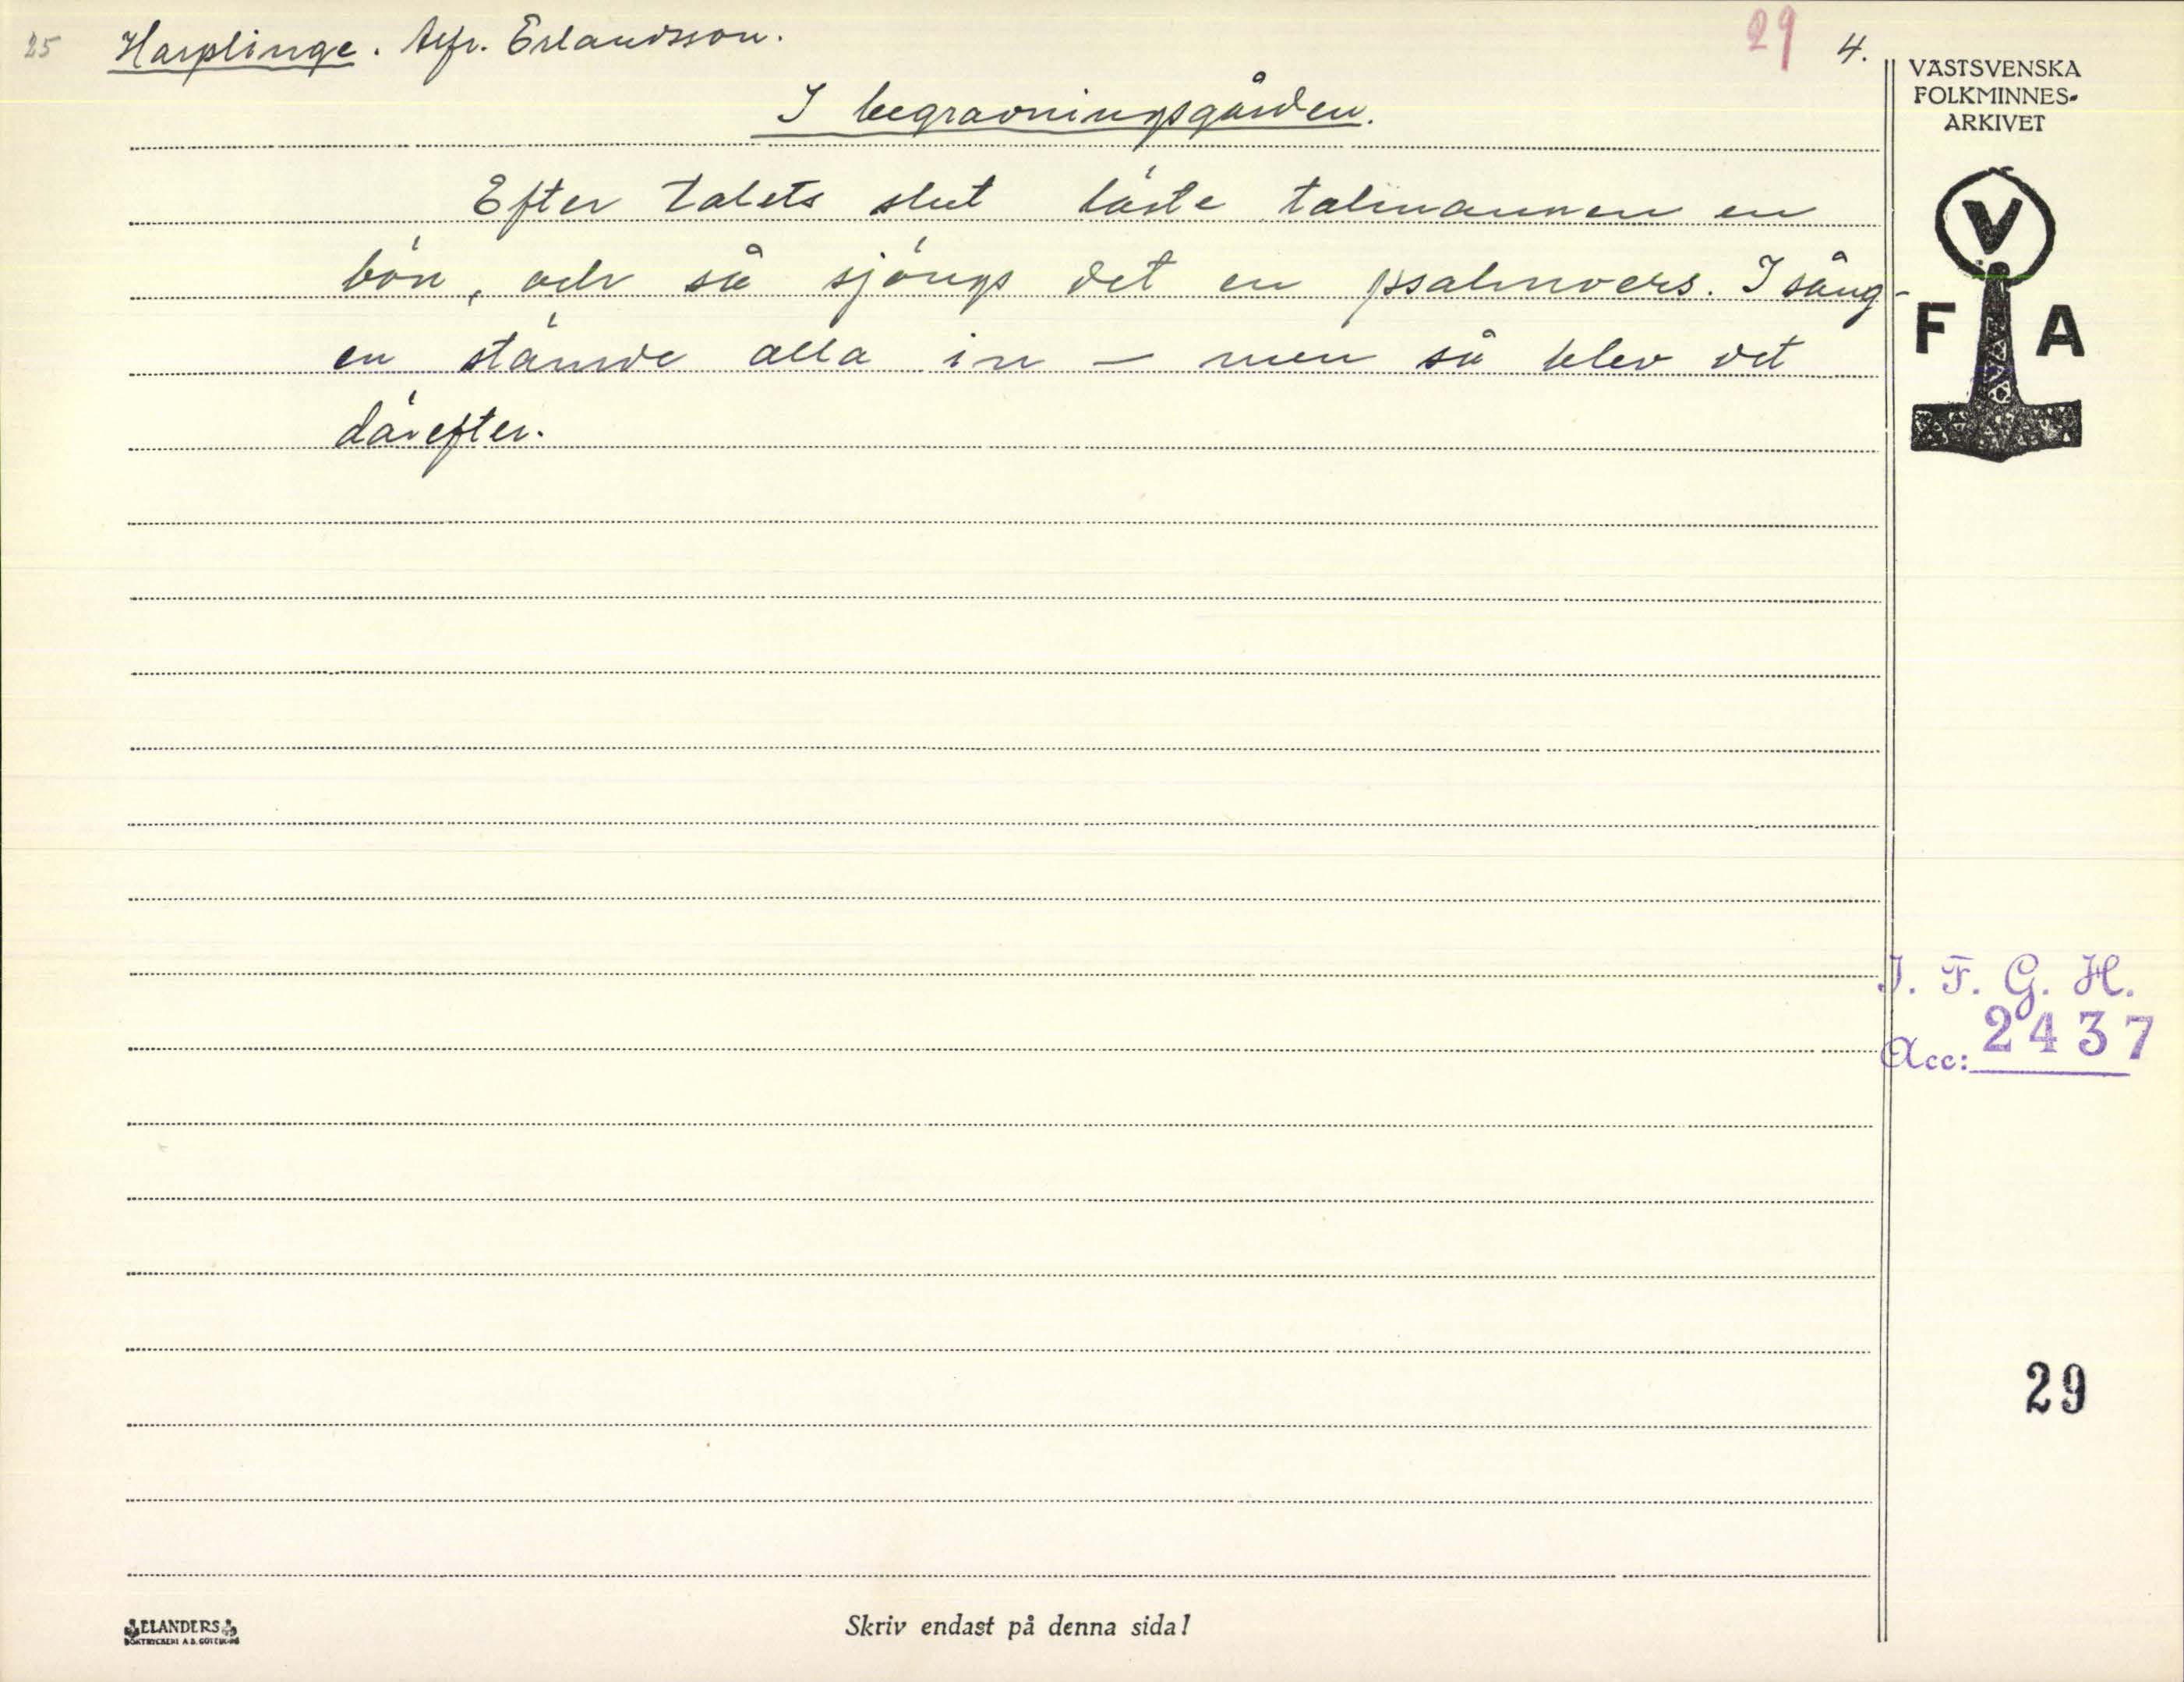 25 Harplinge. Alfr. Erlandsson. 29 4.
I begravningsgården.
Efter talets slut läste talmannen en
bön, och så sjöngs det en psalmvers. I sång-
en stämde alla in – men så blev det
därefter.
VÄSTSVENSKA
FOLKMINNES-
ARKIVET
V
F A
I. F. G. H.
Acc: 2437
29
ELANDERS
BOKTRYCKERI A.B. GÖTEBORG
Skriv endast på denna sida!